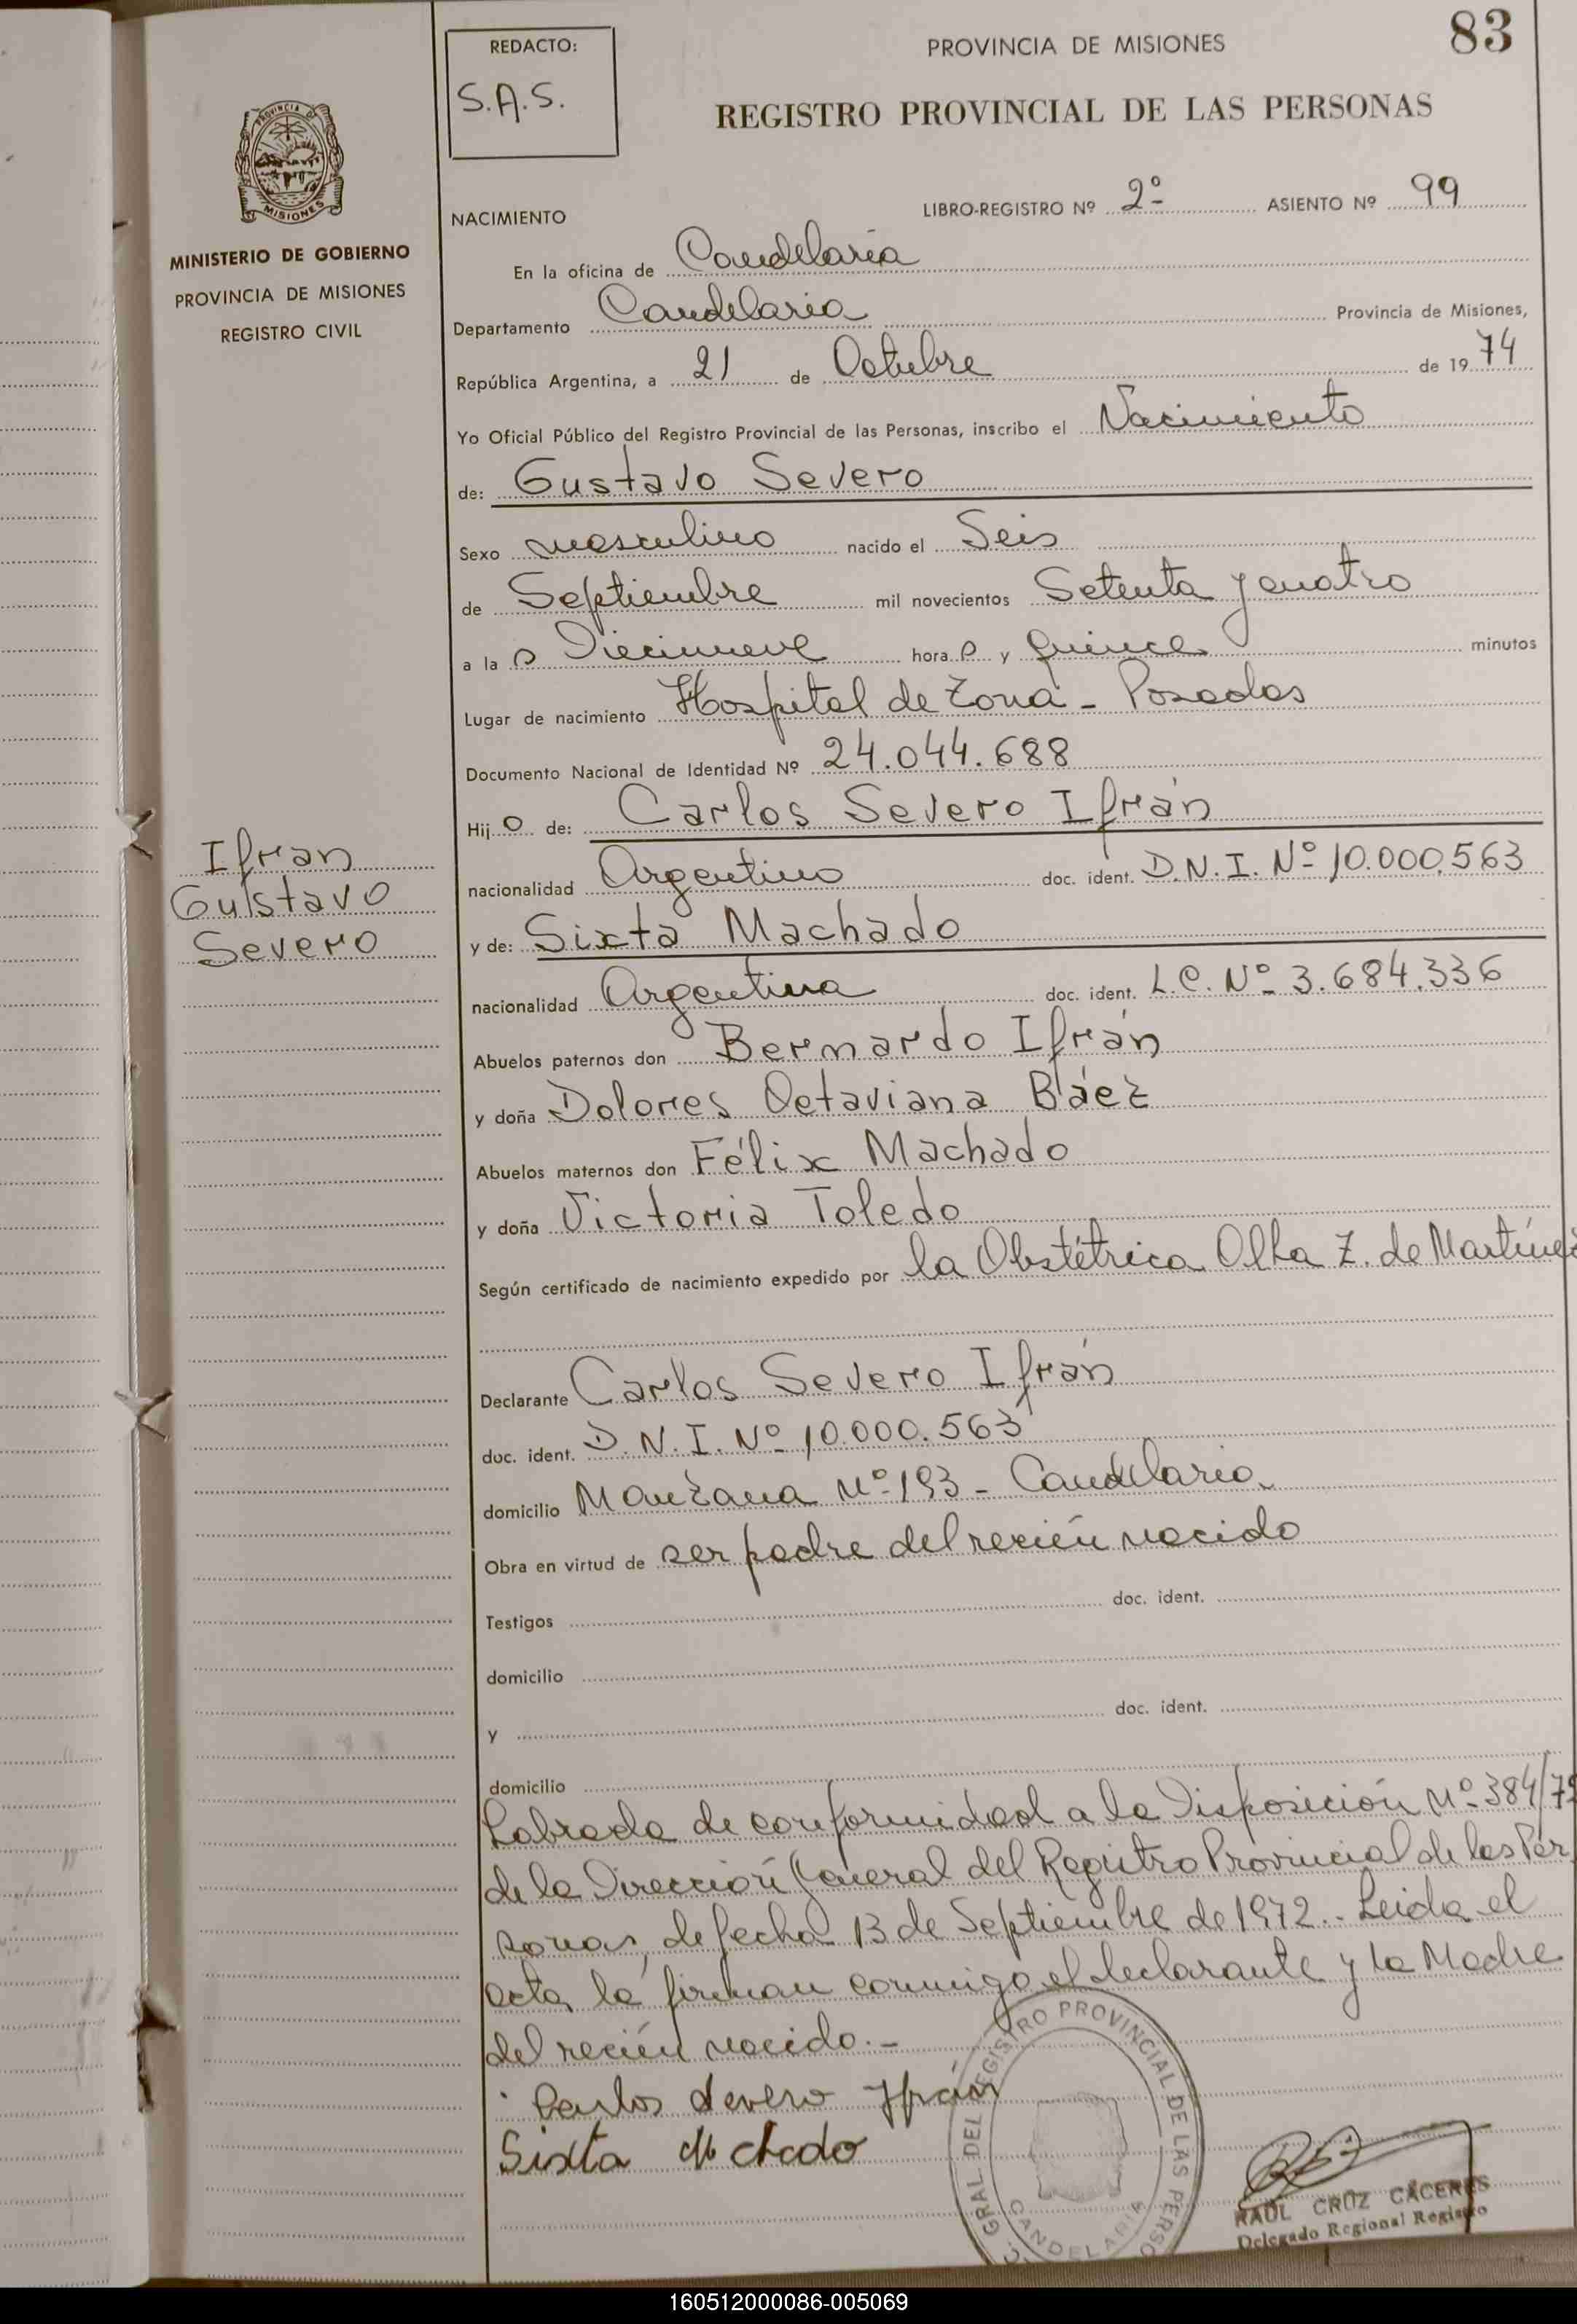 83
REDACTO:
S.A.S.
PROVINCIA DE MISIONES
REGISTRO PROVINCIAL DE LAS PERSONAS
PROVINCIA DE
MISIONES
MINISTERIO DE GOBIERNO
PROVINCIA DE MISIONES
REGISTRO CIVIL
NACIMIENTO
LIBRO-REGISTRO Nº 2º ASIENTO Nº 99
En la oficina de Candelaria
Departamento Candelaria Provincia de Misiones,
República Argentina, a 21 de Octubre de 19 74
Yo Oficial Público del Registro Provincial de las Personas, inscribo el Nacimiento
de: Gustavo Severo
Sexo masculino nacido el Seis
de Septiembre mil novecientos Setenta y cuatro
a la s Diecinueve hora s y Quince minutos
Lugar de nacimiento Hospital de Zona - Posadas
Documento Nacional de Identidad Nº 24.044.688
Hij o de: Carlos Severo Ifrán
nacionalidad Argentino doc. ident. D.N.I. Nº 10.000.563
Ifran
Gustavo
Severo
y de: Sixta Machado
nacionalidad Argentina doc. ident. L.C. Nº 3.684.336
Abuelos paternos don Bernardo Ifrán
y doña Dolores Octaviana Báez
Abuelos maternos don Félix Machado
y doña Victoria Toledo
Según certificado de nacimiento expedido por la Obstétrica Olha Z. de Martínez
Declarante Carlos Severo Ifrán
doc. ident. D.N.I. Nº 10.000.563
domicilio Manzana Nº 193 - Candelaria
Obra en virtud de ser padre del recién nacido
Testigos doc. ident.
domicilio
y doc. ident.
domicilio
Labrada de conformidad a la Disposición Nº 384/72
de la Dirección General del Registro Provincial de las Per
sonas, de fecha 13 de Septiembre de 1972.- Leida el
acta, la firman conmigo el declarante y la Madre
del recién nacido.-
Carlos Severo Ifrán
Sixta Machado
GRAL DEL REGISTRO PROVINCIAL DE LAS PERSO
CANDELARIA
RAUL CRUZ CACERES
Delegado Regional Registro
160512000086-005069